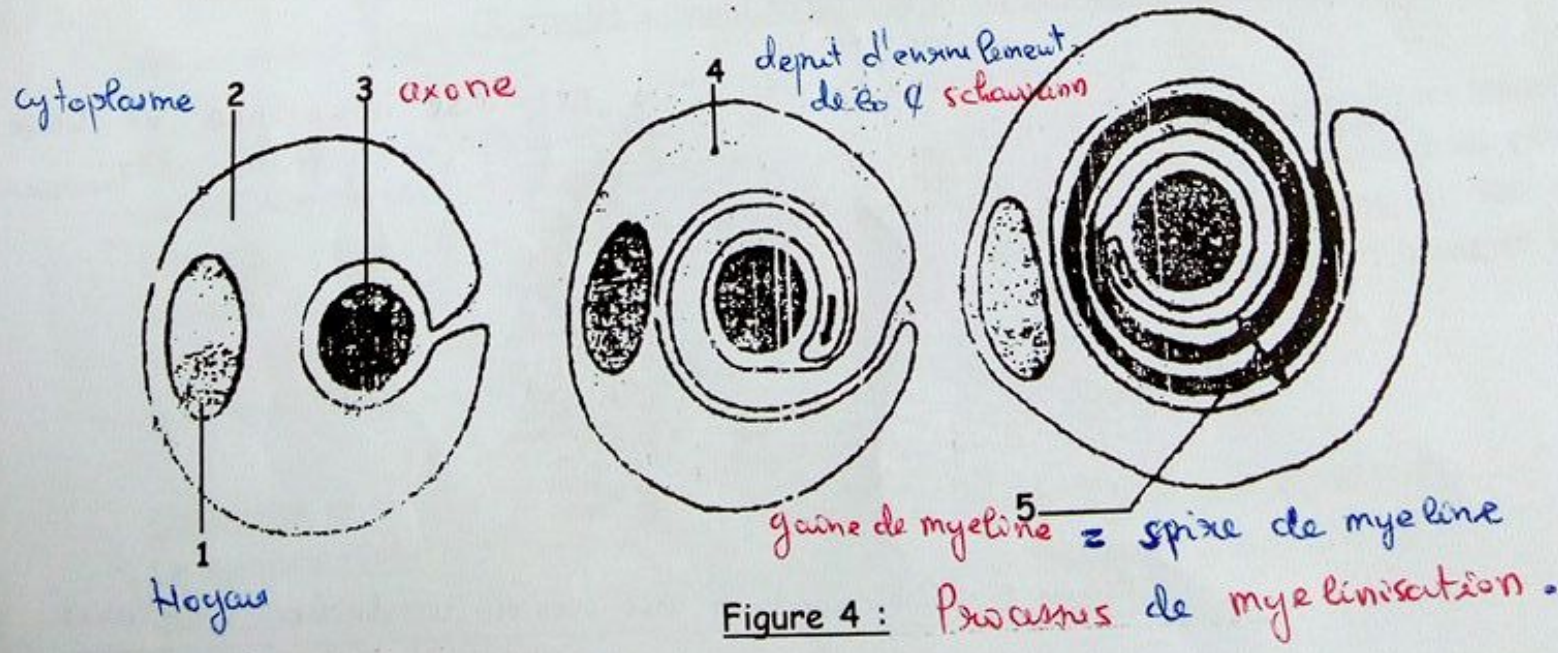 cytoplasme 2
3 axone
4 deput d'enroulement
de la ¢ schawann
1
Noyau
5
gaine de myeline = spire de myeline
Figure 4 : Processus de myelinisation.